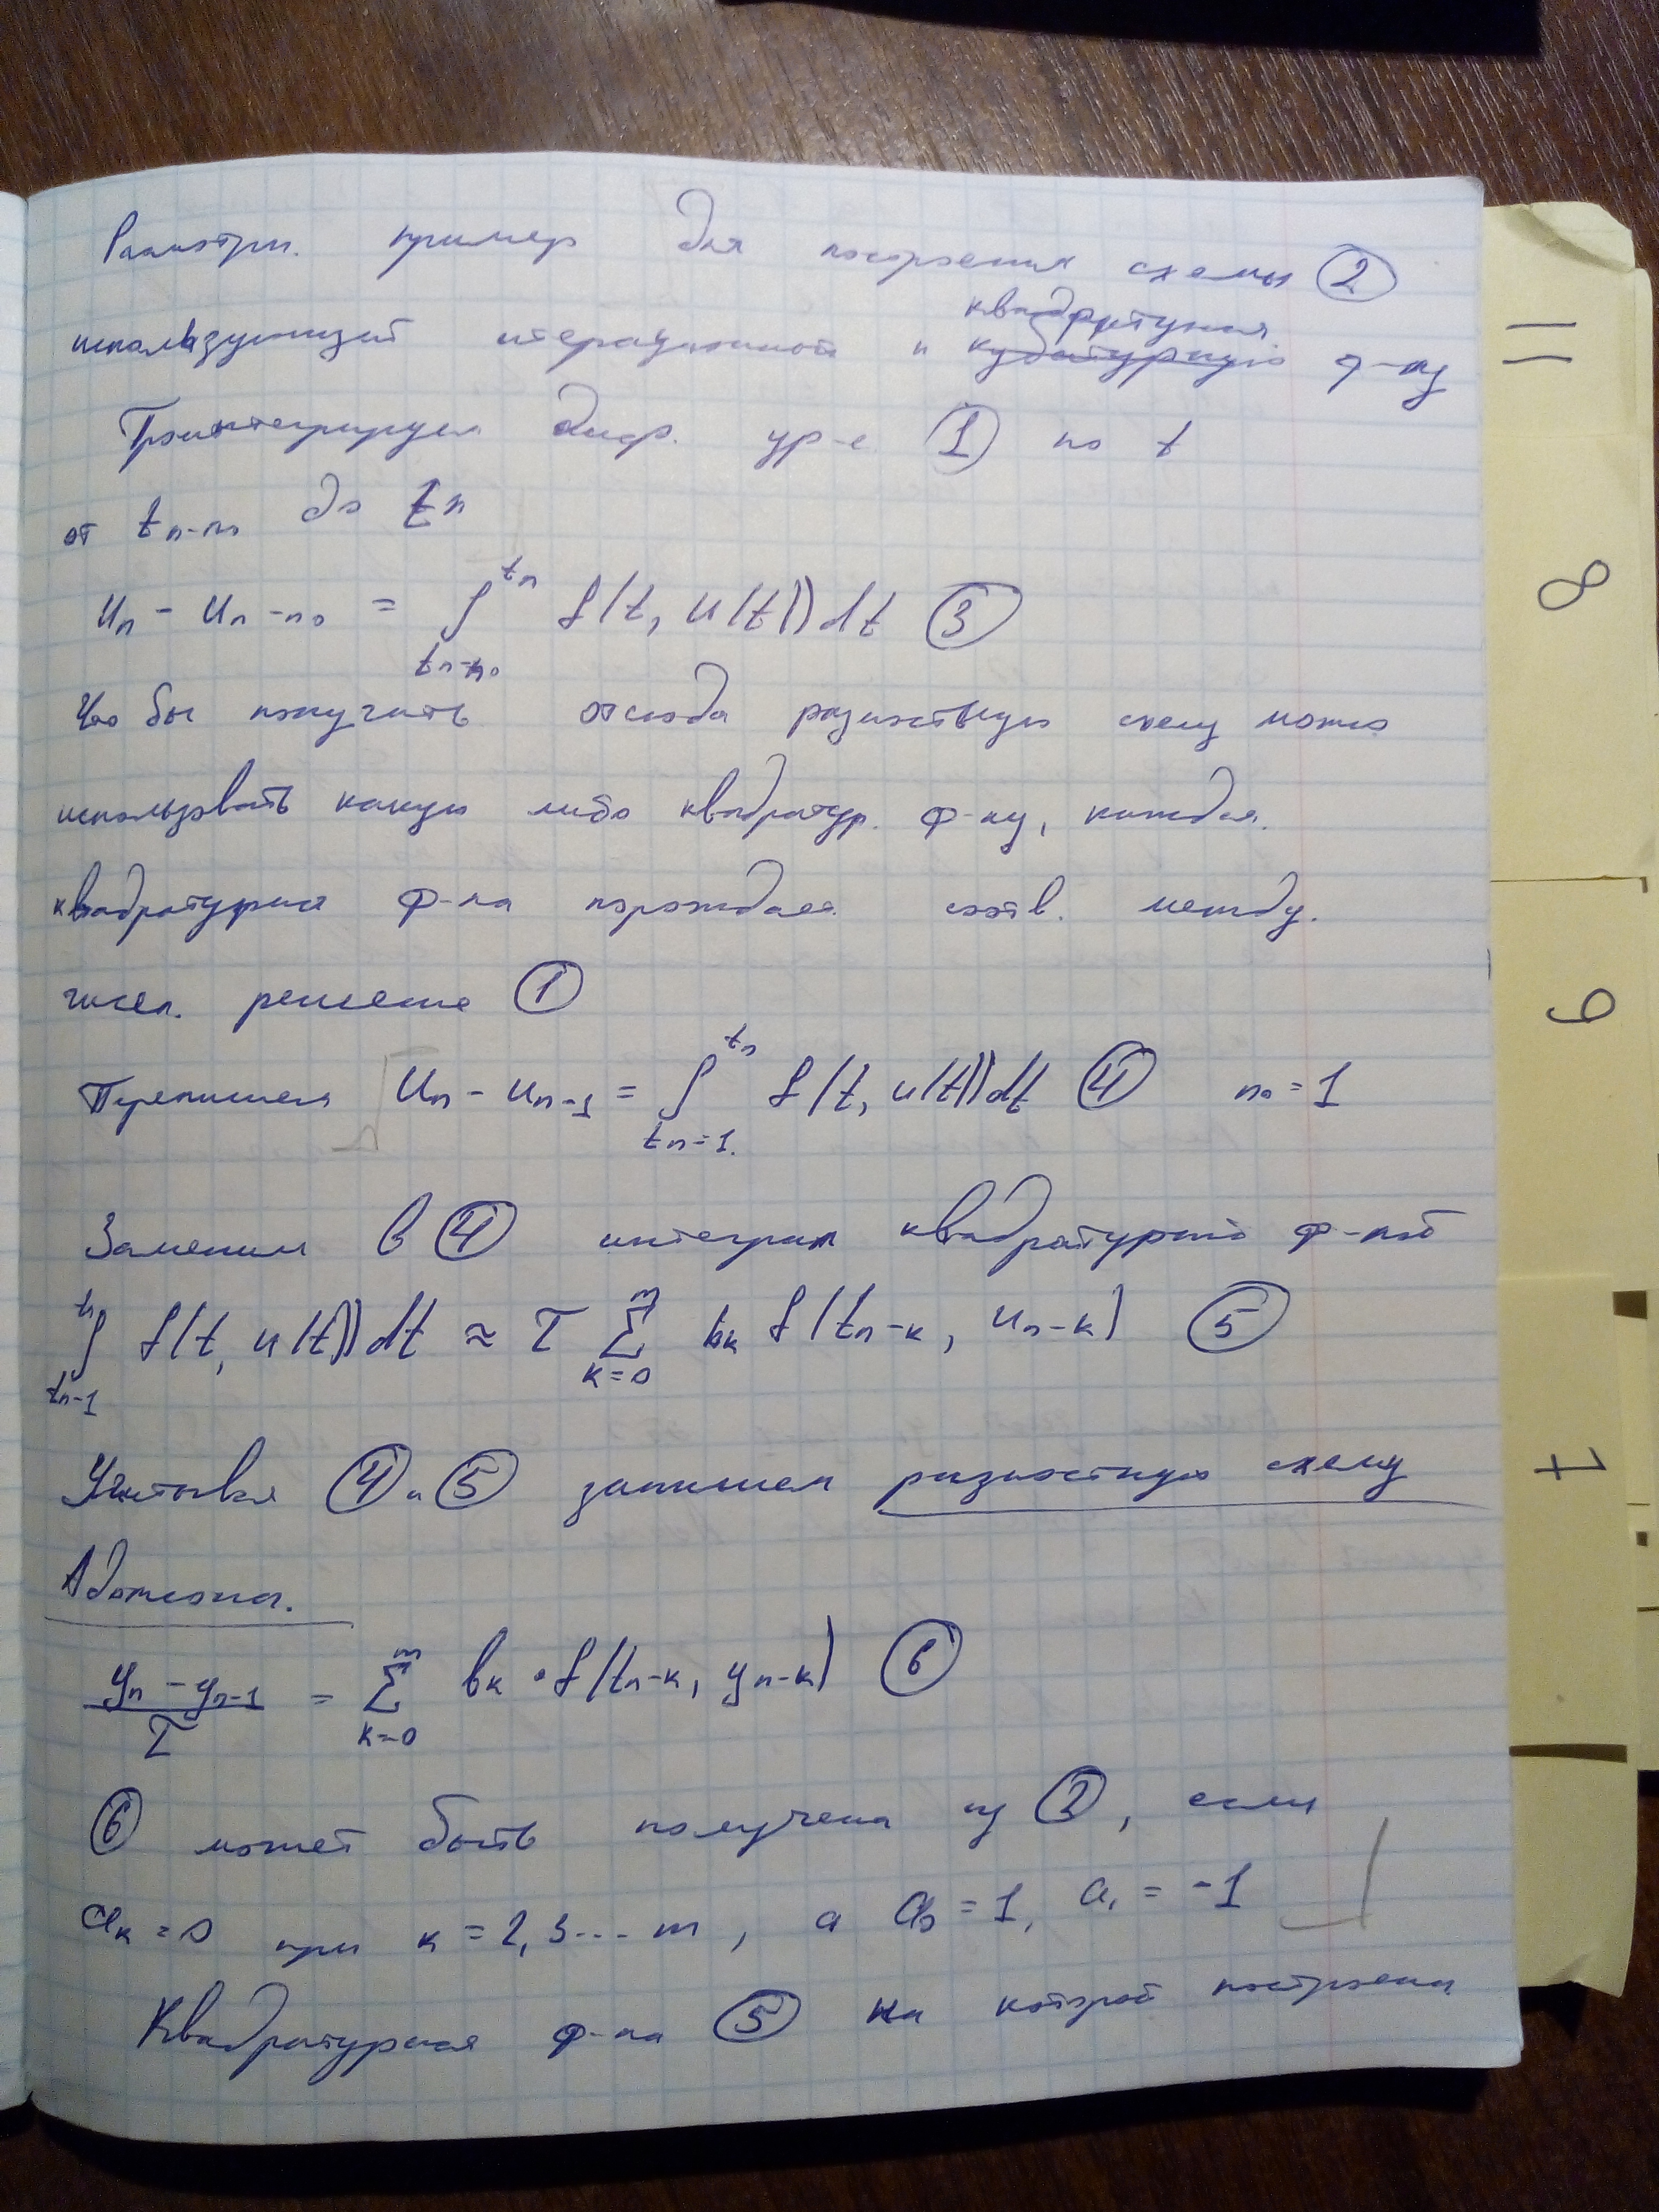 Рассмотри. пример для построения схемы ②
использующей итерационной и квадратурная кубатурную ф-лу
Проинтегрируем диф. ур-е ① по t
от tₙ₋ₙ₀ до tₙ
uₙ - uₙ₋ₙ₀ = ∫_{tₙ₋ₙ₀}^{tₙ} f(t, u(t))dt ③
Что бы получить отсюда разностную схему можно
использовать какую либо квадратур. ф-лу, каждая
квадратурная ф-ла порождает соотв. между.
числ. решение ①
Перепишем uₙ - uₙ₋₁ = ∫_{tₙ₌₁.}^{tₙ} f(t, u(t))dt ④ n₀ = 1
Заменим в ④ интеграл квадратурной ф-лой
∫_{tₙ₋₁}^{tₙ} f(t, u(t))dt ≈ τ ∑_{k=0}^{m} bₖ f(tₙ₋ₖ, uₙ₋ₖ) ⑤
Учитывая ④ и ⑤ запишем разностную схему
Адамсона.
(yₙ - yₙ₋₁)/τ = ∑_{k=0}^{m} bₖ · f(tₙ₋ₖ, yₙ₋ₖ) ⑥
⑥ может быть получена из ②, если
aₖ = 0 при k = 2, 3... m, а a₀ = 1, a₁ = -1
Квадратурная ф-ла ⑤ на которой построены
11
8
9
7